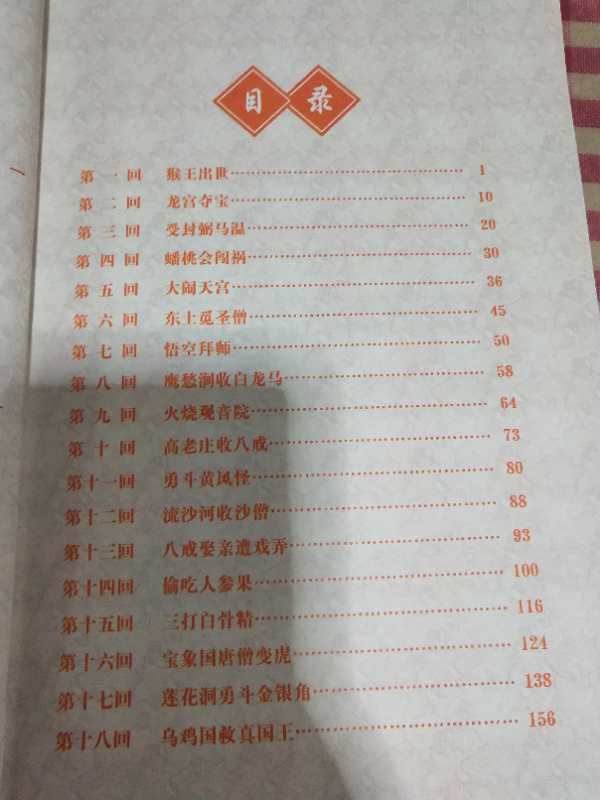 目录
第一回 猴王出世……1
第二回 龙宫夺宝……10
第三回 受封弼马温……20
第四回 蟠桃会闯祸……30
第五回 大闹天宫……36
第六回 东土觅圣僧……45
第七回 悟空拜师……50
第八回 鹰愁涧收白龙马……58
第九回 火烧观音院……64
第十回 高老庄收八戒……73
第十一回 勇斗黄风怪……80
第十二回 流沙河收沙僧……88
第十三回 八戒娶亲遭戏弄……93
第十四回 偷吃人参果……100
第十五回 三打白骨精……116
第十六回 宝象国唐僧变虎……124
第十七回 莲花洞勇斗金银角……138
第十八回 乌鸡国救真国王……156